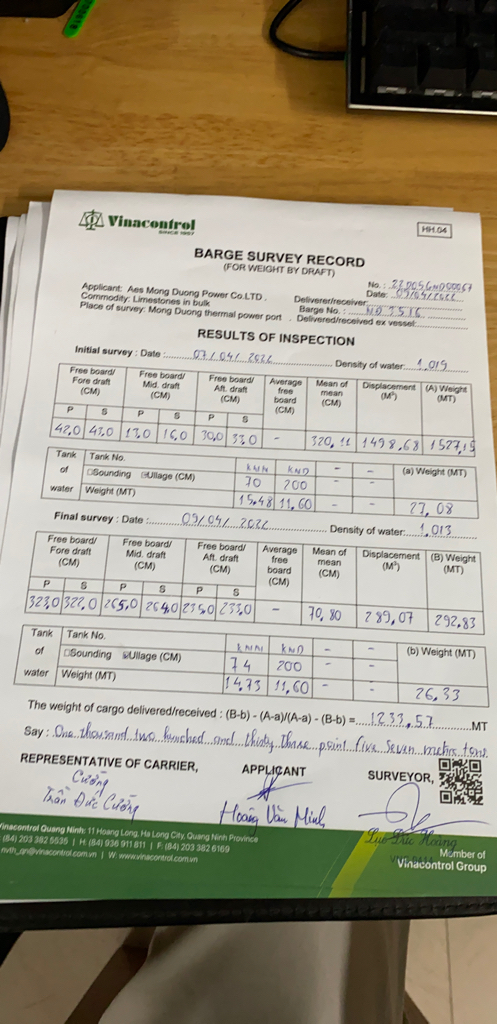 Vinacontrol
SINCE 1957
HH.04
BARGE SURVEY RECORD
(FOR WEIGHT BY DRAFT)
No. :
Applicant: Aes Mong Duong Power Co.LTD . Date: 09/04/2022
Commodity: Limestones in bulk Deliverer/receiver:
Place of survey: Mong Duong thermal power port . Barge No. : ND 3516
Delivered/received ex vessel:
RESULTS OF INSPECTION
Initial survey : Date : 07/04/2022 Density of water: 1,019
Free board/ Fore draft (CM) Free board/ Mid. draft (CM) Free board/ Aft. draft (CM) Average free board (CM) Mean of mean (CM) Displacement (M³) (A) Weight (MT)
P S P S P S
42,0 43,0 17,0 16,0 30,0 33,0 - 320,11 1498,68 1527,15
Tank of water Tank No. KNM KND - - (a) Weight (MT)
Sounding Ullage (CM) 70 200 - -
Weight (MT) 15,48 11,60 - - 27,08
Final survey : Date : 09/04/2022 Density of water: 1,013
Free board/ Fore draft (CM) Free board/ Mid. draft (CM) Free board/ Aft. draft (CM) Average free board (CM) Mean of mean (CM) Displacement (M³) (B) Weight (MT)
P S P S P S
323,0 322,0 265,0 264,0 235,0 233,0 - 70,80 289,07 292,83
Tank of water Tank No. KNM KND - - (b) Weight (MT)
Sounding Ullage (CM) 74 200 - -
Weight (MT) 14,73 11,60 - - 26,33
The weight of cargo delivered/received : (B-b) - (A-a)/(A-a) - (B-b) = 1233,57 MT
Say : One thousand two hundred and thirty three point five seven metric tons.
REPRESENTATIVE OF CARRIER, APPLICANT SURVEYOR,
Cường
Trần Đức Cường Hoàng Văn Minh Lưu Đức Hoàng
Vinacontrol Quảng Ninh: 11 Hoang Long, Ha Long City, Quang Ninh Province
(84) 203 382 5635 | H: (84) 936 911 811 | F: (84) 203 382 6169
nvth_qn@vinacontrol.com.vn | W: www.vinacontrol.com.vn
Member of
Vinacontrol Group